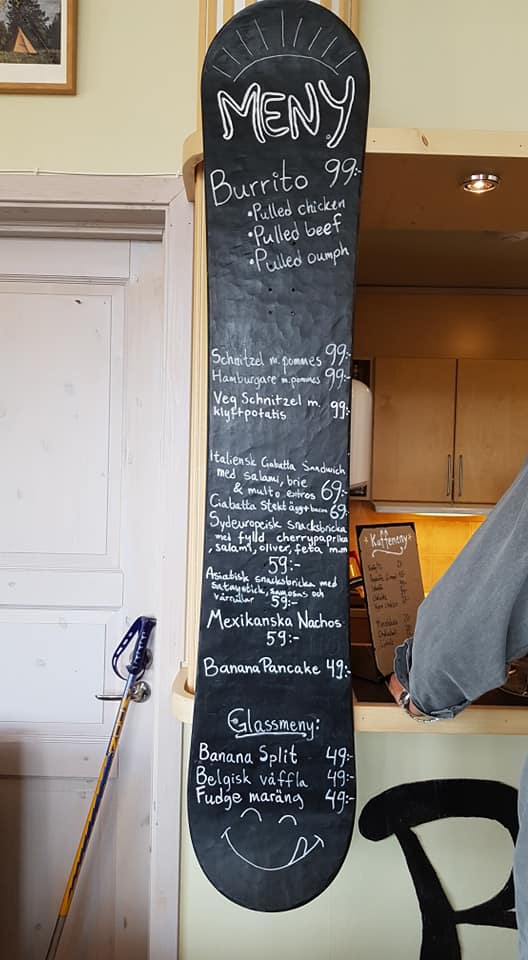 MENY
Burrito 99:-
• Pulled chicken
• Pulled beef
• Pulled oumph
Schnitzel m. pommes 99:-
Hamburgare m. pommes 99:-
Veg Schnitzel m. 99:-
klyftpotatis
Italiensk Ciabatta Sandwich
med salami, brie
& multo extros 69:-
Ciabatta Stekt ägg+bacon 69:-
Sydeuropeisk snacksbricka
med fylld cherrypaprika
, salami, oliver, feta m.m
59:-
Asiatisk snacksbricka med
sataystick, samosas och
vårrullar 59:-
Mexikanska Nachos
59:-
Banana Pancake 49:-
Glassmeny:
Banana Split 49:-
Belgisk våffla 49:-
Fudge maräng 49:-
Kaffemeny